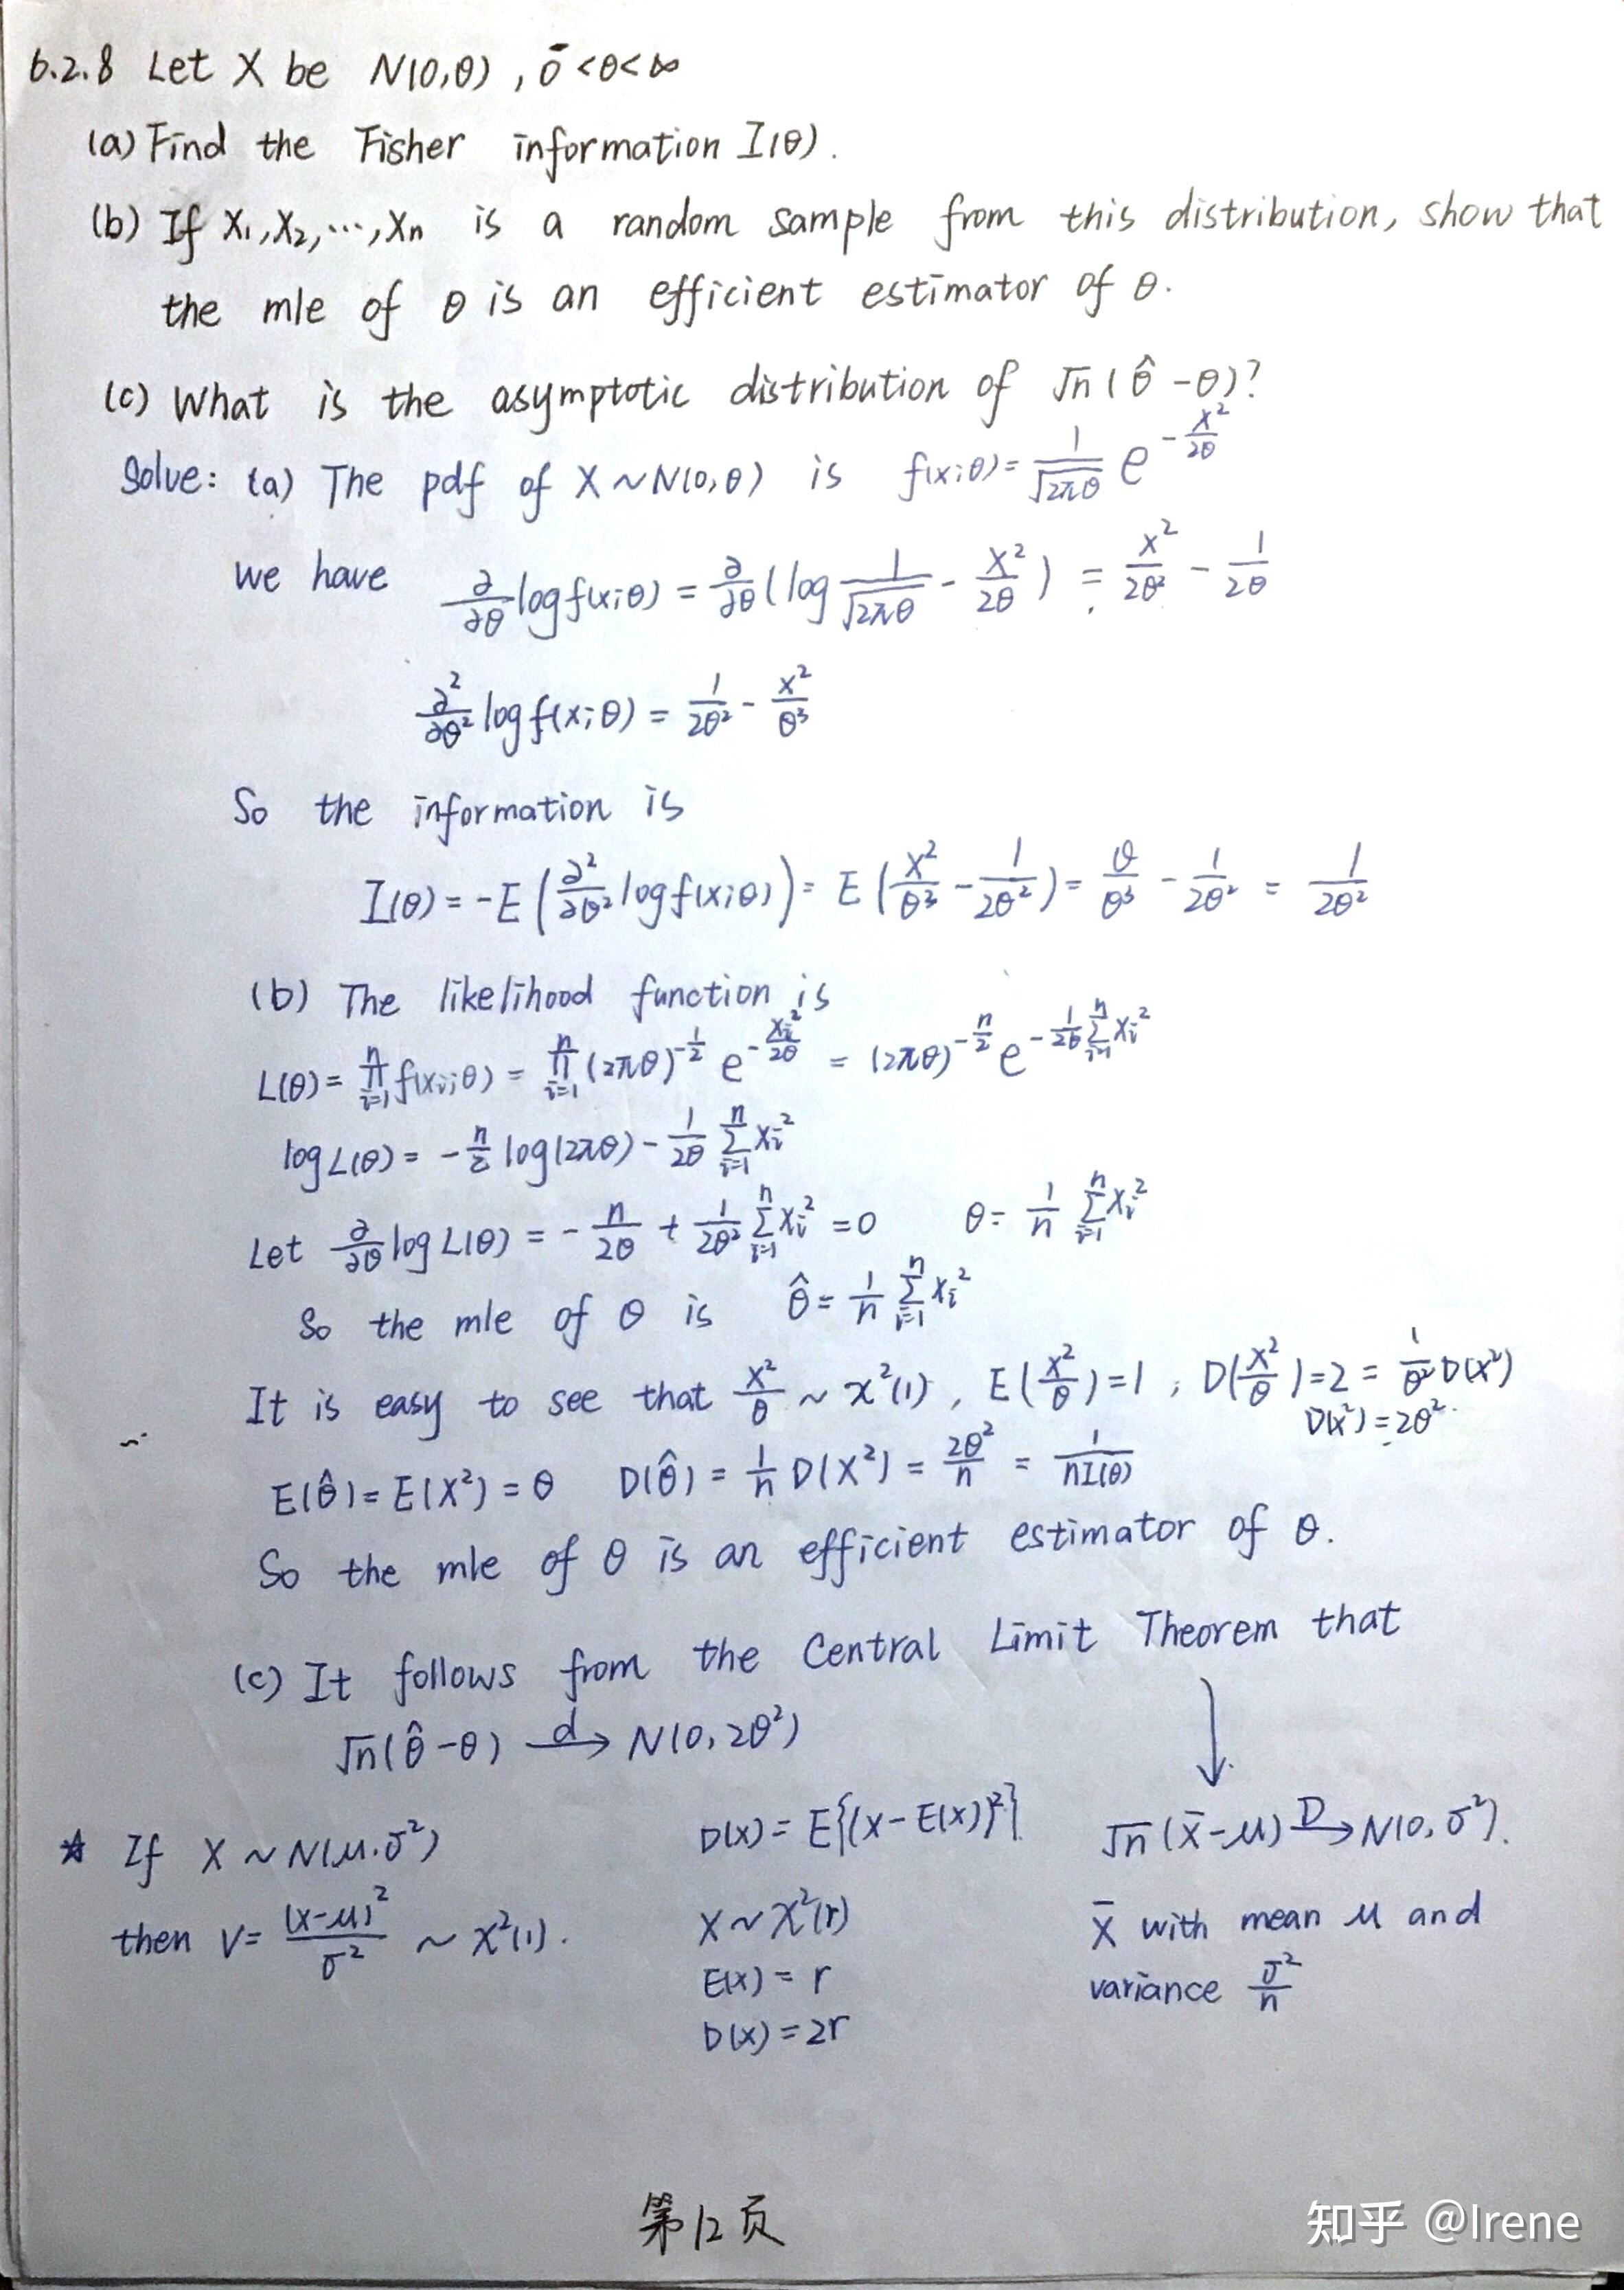 6.2.8 Let X be N(0,θ), 0<θ<∞
(a) Find the Fisher information I(θ).
(b) If X₁,X₂,⋯,Xn is a random sample from this distribution, show that
the mle of θ is an efficient estimator of θ.
(c) What is the asymptotic distribution of √n(θ̂-θ)?
Solve: (a) The pdf of X~N(0,θ) is f(x;θ)= 1/√(2πθ) e^(-x²/2θ)
we have ∂/∂θ log f(x;θ) = ∂/∂θ (log 1/√(2πθ) - x²/2θ) = x²/2θ² - 1/2θ
∂²/∂θ² log f(x;θ) = 1/2θ² - x²/θ³
So the information is
I(θ) = -E(∂²/∂θ² log f(x;θ)) = E(x²/θ³ - 1/2θ²) = θ/θ³ - 1/2θ² = 1/2θ²
(b) The likelihood function is
L(θ) = ∏_{i=1}^{n} f(xi;θ) = ∏_{i=1}^{n} (2πθ)^(-1/2) e^(-xi²/2θ) = (2πθ)^(-n/2) e^(-1/2θ ∑_{i=1}^{n} xi²)
log L(θ) = -n/2 log(2πθ) - 1/2θ ∑_{i=1}^{n} xi²
Let ∂/∂θ log L(θ) = -n/2θ + 1/2θ² ∑_{i=1}^{n} xi² = 0 θ = 1/n ∑_{i=1}^{n} xi²
So the mle of θ is θ̂ = 1/n ∑_{i=1}^{n} xi²
It is easy to see that x²/θ ~ χ²(1), E(x²/θ)=1, D(x²/θ)=2 = 1/θ² D(x²)
D(x²)=2θ²
E(θ̂) = E(X²) = θ D(θ̂) = 1/n D(X²) = 2θ²/n = 1/nI(θ)
So the mle of θ is an efficient estimator of θ.
(c) It follows from the Central Limit Theorem that
√n(θ̂-θ) →d N(0,2θ²)
☆ If X~N(μ.σ²)
then V= (x-μ)²/σ² ~ χ²(1).
D(x) = E{(x-E(x))²}
X~χ²(r)
E(x) = r
D(x) = 2r
√n(x̄-μ) →D N(0,σ²).
X̄ with mean μ and
variance σ²/n
第12页
知乎 @Irene